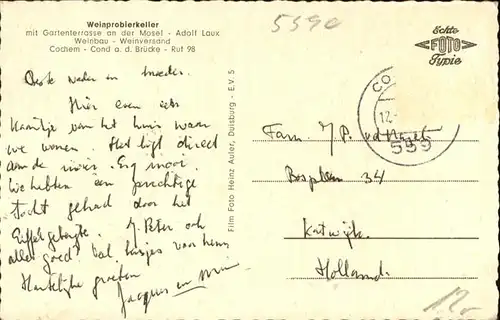 Weinprobierkeller
mit Gartenterrasse an der Mosel - Adolf Laux
Weinbau - Weinversand
Cochem - Cond a. d. Brücke - Ruf 98
5590
Echte
FOTO
Typie
Beste vader en moeder.
Hier even een
kaartje van het huis waar
we wonen. Het ligt direct
aan de rivier. Erg mooi.
We hebben een prachtige
tocht gehad door het
Eiffelgebergte. Peter ook
alles goed? kusjes voor hem
Hartelijke groeten
Jacques en
Film Foto Heinz Auler, Duisburg - E.V. 5
CO
12.
559
Fam. P. vd
34
Katwijk.
Holland.